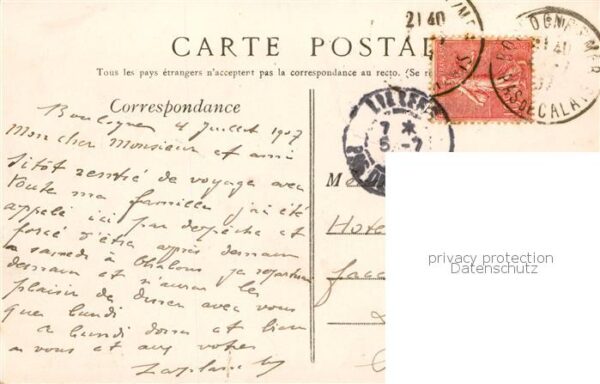 CARTE POSTALE
Tous les pays étrangers n'acceptent pas la correspondance au recto. (Se
Correspondance
Boulogne 4 Juillet 1907
Mon cher Monsieur et ami
Sitôt rentré de voyage avec
toute ma famille j'ai été
appelé ici par depêche et
forcé d'être après demain
samedi à Chalons je repartirai
demain et n'aurai le
plaisir de diner avec vous
que lundi
a lundi donc et bien
a vous et aux votres
M
Hote
face
2140
BOULOGNE-S-MER
PAS DE CALAIS
7 *
5 -7
privacy protection
Datenschutz